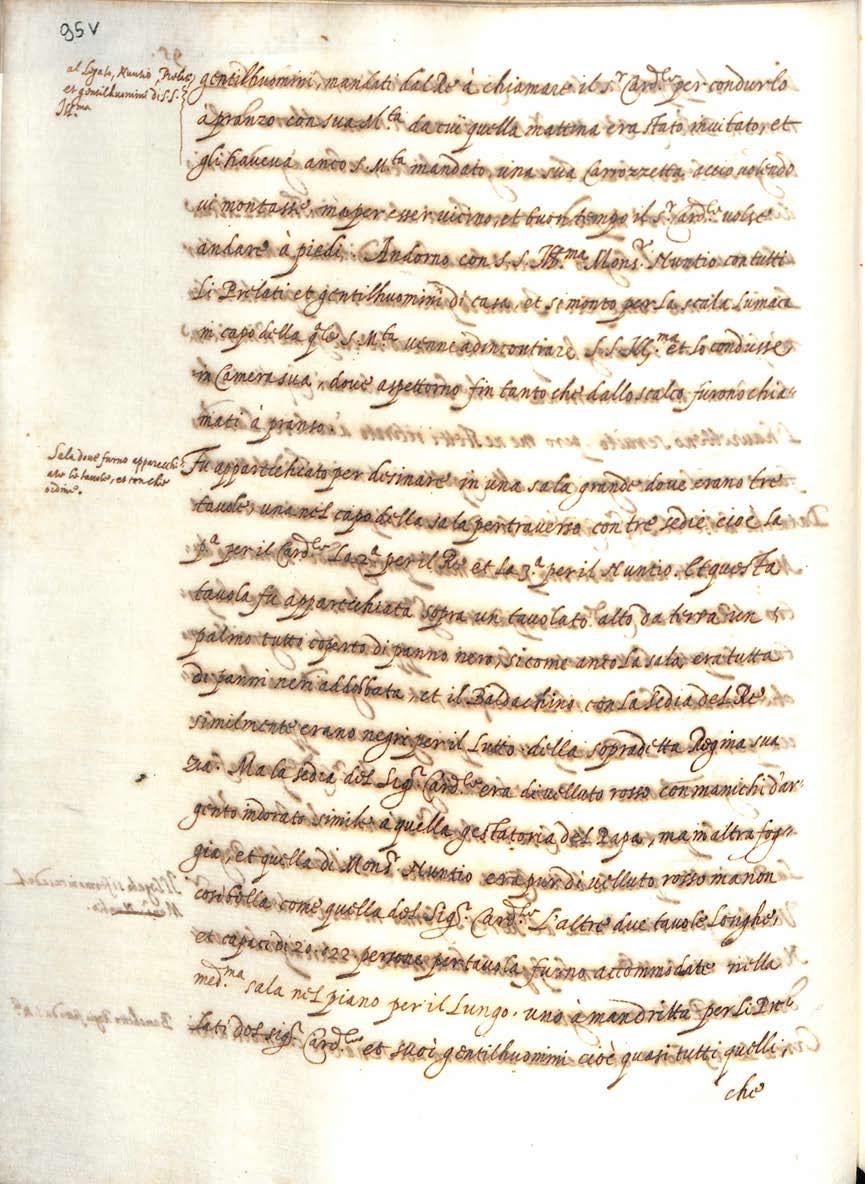 95v
al Legato, Nuntio, Prelati,
et gentilhuomini di S.S.
Ill.ma
gentilhuomini, mandati dal Rè à chiamare il s.r Card.le per condurlo
à pranzo con sua M.ta da cui quella mattina era stato invitato, et
gli haveva anco S. M.ta mandato, una sua Carrozzetta acciò volendo
vi montasse, ma per esser vicino, et buon tempo il s.r Card.le volse
andare à piedi. Andorno con S. S. Ill.ma Mons.r Nuntio con tutti
li Prelati et gentilhuomini di casa, et si montò per la scala lumaca
in capo della q.le S. M.ta venne ad incontrare S. S. Ill.ma et lo condusse
in Camera sua, dove aspettorno fin tanto che dallo scalco furono chia=
mati à pranso.
Sala dove furno apparecchi=
ate le tavole, et con che
ordine.
Fu apparecchiato per desinare in una sala grande dove erano tre
tavole, una nel capo della sala per traverso con tre sedie cioè la
p.a per il Card.le la 2.a per il Rè et la 3.a per il Nuntio. Et questa
tavola fu apparecchiata sopra un tavolato alto da terra un
palmo tutto coperto di panno nero, si come anco la sala era tutta
di panni neri addobbata, et il Baldachino con la sedia del Rè
similmente erano negri per il lutto della sopradetta Regina sua
zia. Ma la sedia del Sig.r Card.le era di velluto rosso con manichi d'ar=
gento indorato simile à quella gestatoria del Papa, ma in altra fog=
gia, et quella di Mons.r Nuntio era pur di velluto rosso ma non
così bella come quella del Sig.r Card.le L'altre due tavole longhe,
et capaci di 20. ò 22. persone per tavola furno accommodate nella
med.ma sala nel piano per il lungo. uno à man dritta per li Pre=
lati del sig.r Card.le et suoi gentilhuomini cioè quasi tutti quelli,
che